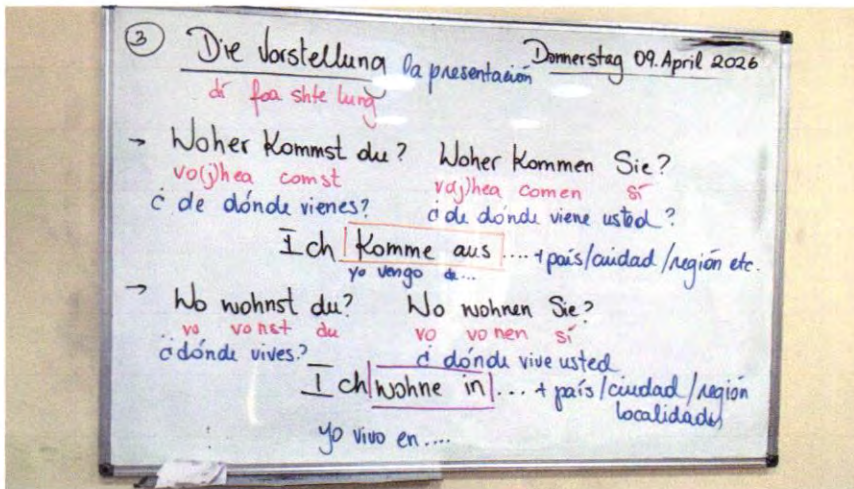 ③ Die Vorstellung la presentación Donnerstag 09. April 2026
di foa shte lung
→ Woher Kommst du? Woher Kommen Sie?
vo(j)hea comst vo(j)hea comen sí
¿ de dónde vienes? ¿ de dónde viene usted?
Ich Komme aus .... + país/ciudad/región etc.
yo vengo de...
→ Wo wohnst du? Wo wohnen Sie?
vo vonst du vo vonen sí
¿dónde vives? ¿ dónde vive usted
Ich wohne in .... + país/ciudad/región
localidades
yo vivo en ....